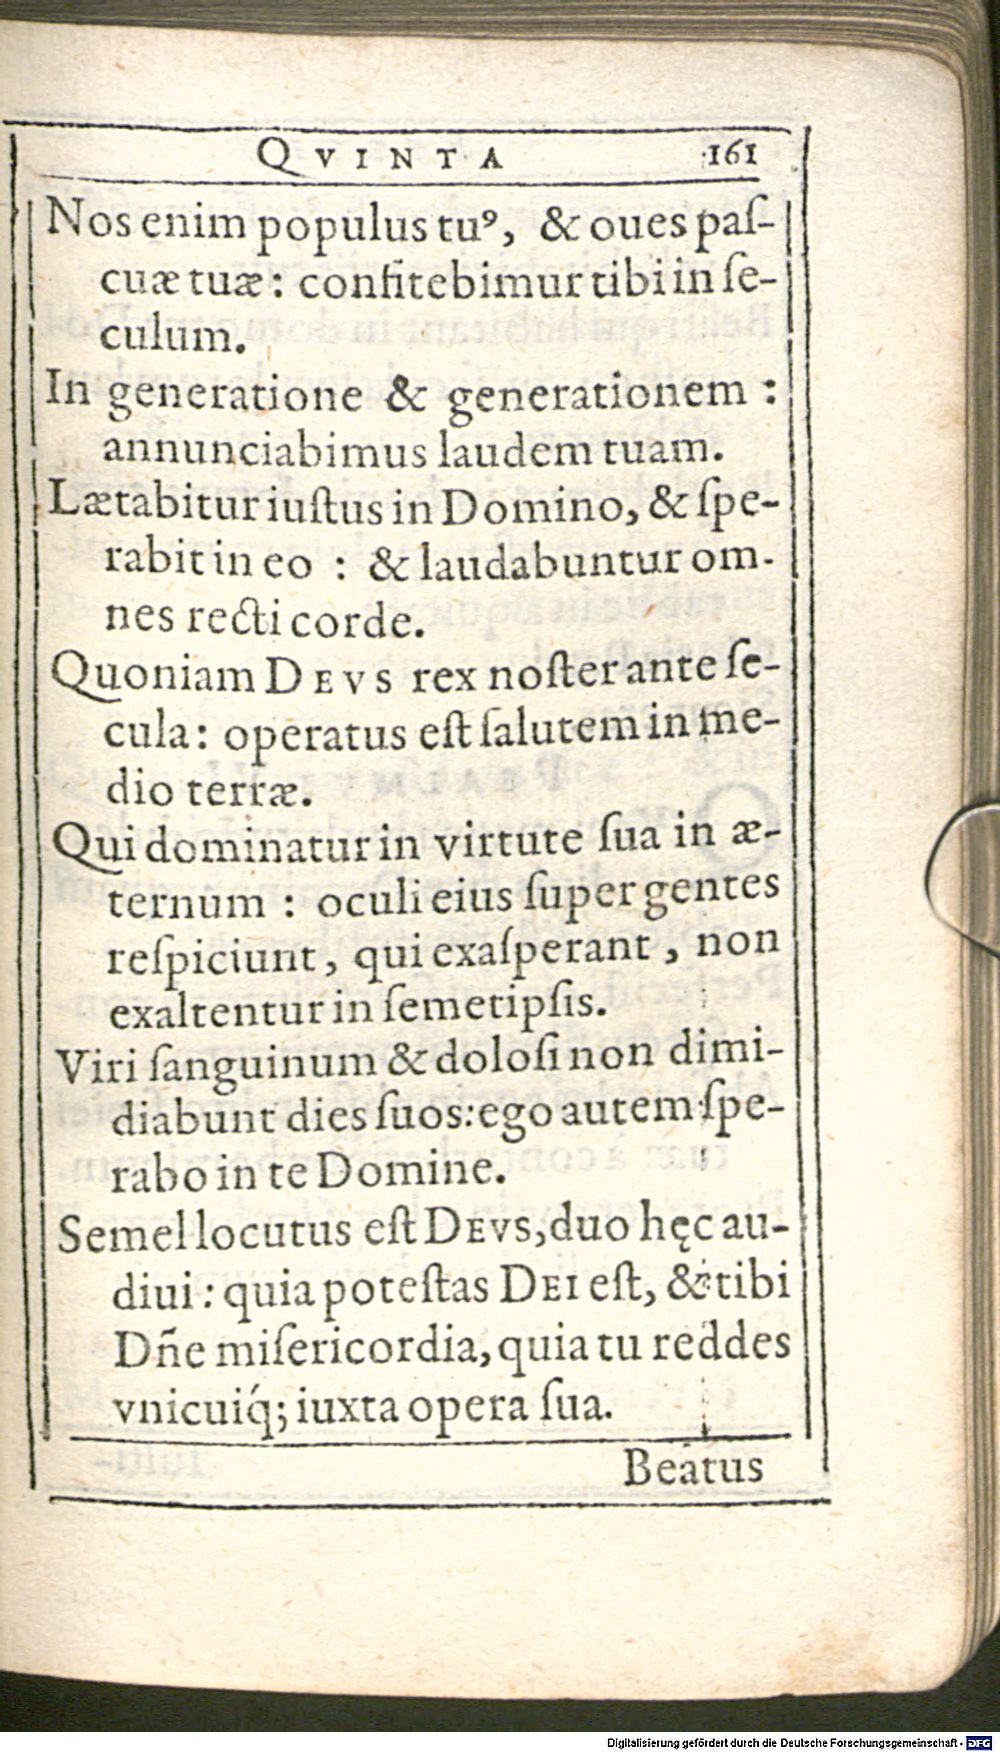 QVINTA 161
Nos enim populus tuꝰ, & oues paſ-
cuæ tuæ : confitebimur tibi in ſe-
culum.
In generatione & generationem :
annunciabimus laudem tuam.
Lætabitur iuſtus in Domino, & ſpe-
rabit in eo : & laudabuntur om-
nes recti corde.
Quoniam DEVS rex noſter ante ſe-
cula : operatus eſt ſalutem in me-
dio terræ.
Qui dominatur in virtute ſua in æ-
ternum : oculi eius ſuper gentes
reſpiciunt, qui exaſperant, non
exaltentur in ſemetipſis.
Viri ſanguinum & doloſi non dimi-
diabunt dies ſuos: ego autem ſpe-
rabo in te Domine.
Semel locutus eſt DEVS, duo hęc au-
diui : quia poteſtas DEI eſt, & tibi
Dñe miſericordia, quia tu reddes
vnicuiq́; iuxta opera ſua.
Beatus
Digitalisierung gefördert durch die Deutsche Forschungsgemeinschaft - DFG